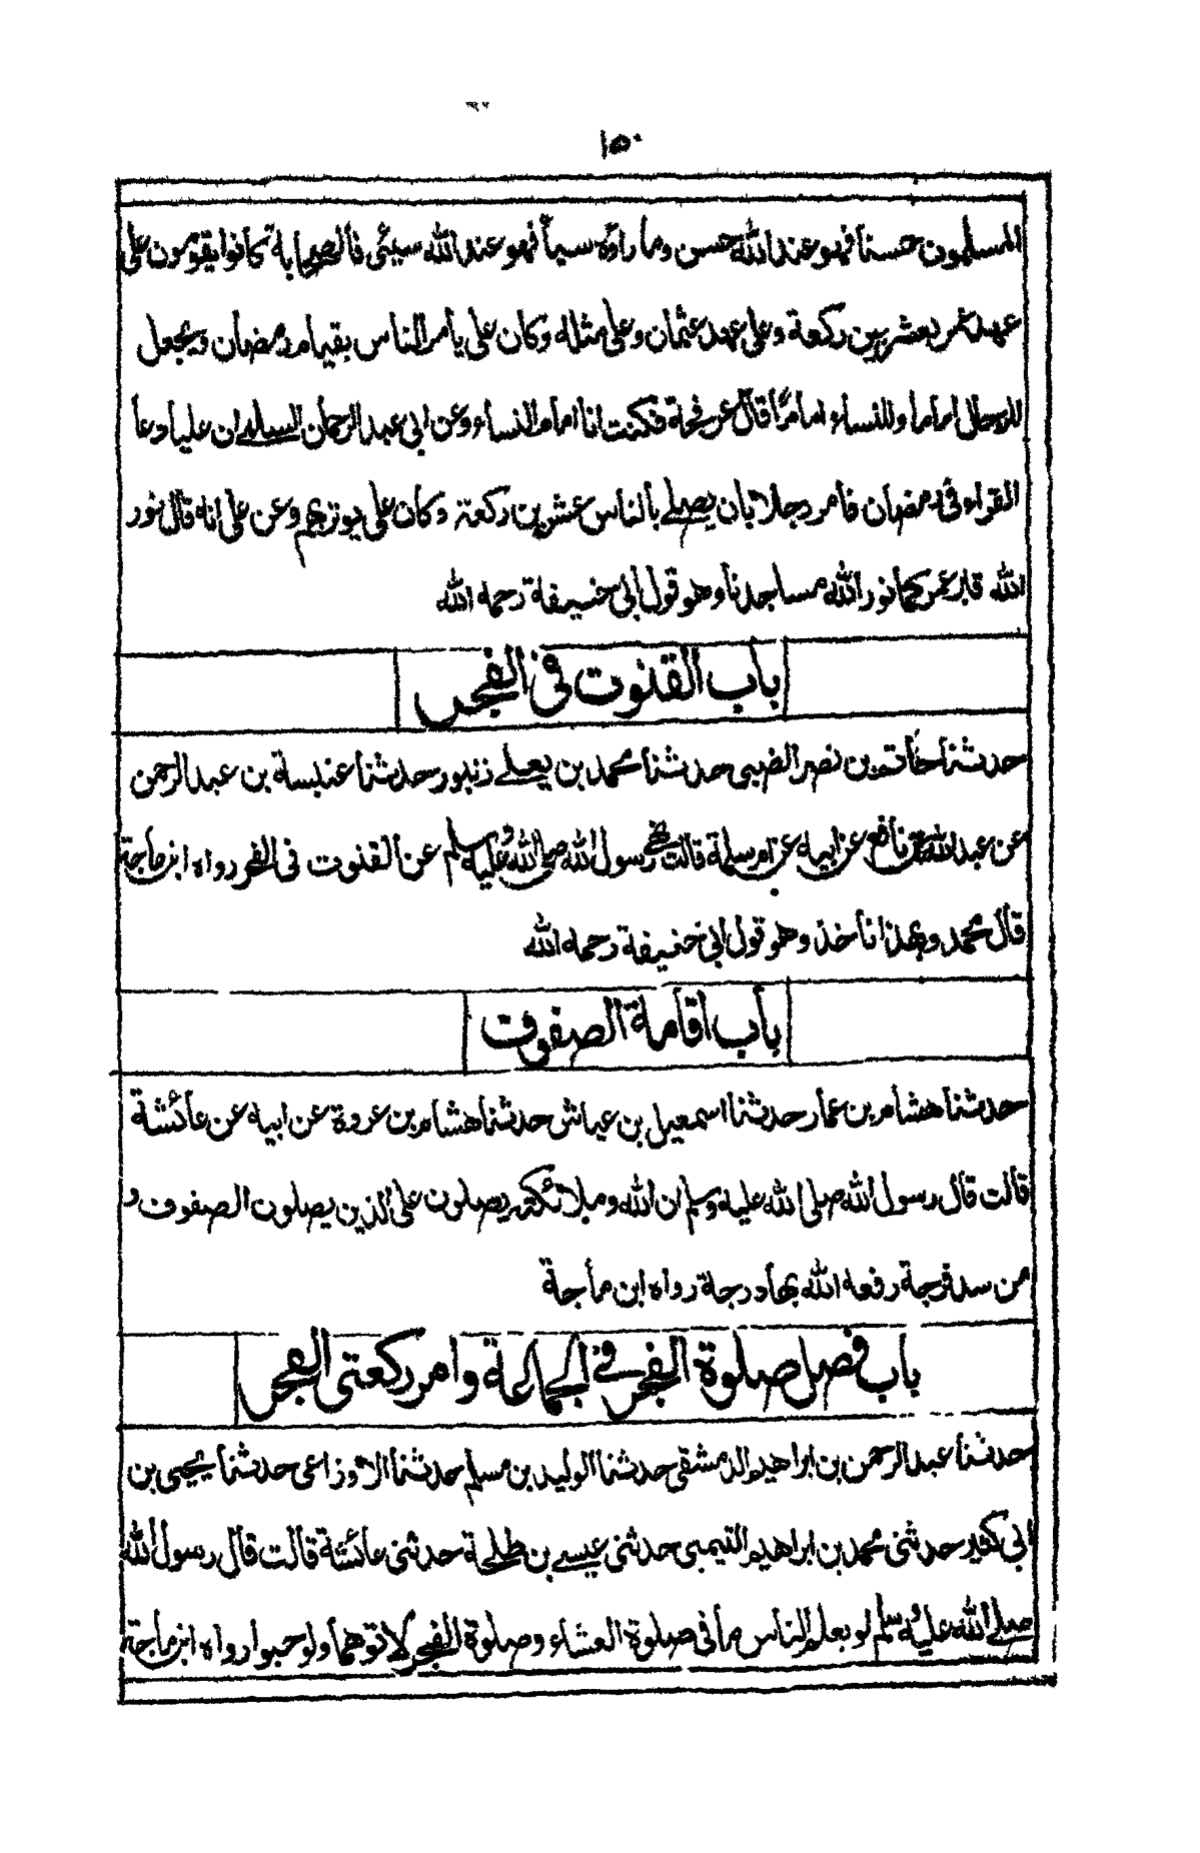 ١٥٠
المسلمون حسنا فهو عند الله حسن وما راوه سيأ فهو عند الله سيئى فالصحابة كانوا يقومون على
عهد عمر بعشرين ركعة وعلى عهد عثمان وعلى مثله وكان على يأمر الناس بقيام رمضان ويجعل
للرجال اماما وللنساء اماما قال عرفجة فكنت انا امام النساء وعن ابى عبد الرحمان السلمى ان عليا دعا
القراء فى رمضان فأمر رجلا بان يصلے بالناس عشرين ركعة وكان على يوتربهم وعن على انه قال نور
الله قبر عمر كما نور الله مساجدنا وهو قول ابى حنيفة رحمه الله
باب القنوت فى الفجر
حدثنا حاتم بن نصر الضبى حدثنا محمد بن يعلے زنبور حدثنا عنبسة بن عبد الرحمن
عن عبد الله بن نافع عن ابيه عن ام سلمة قالت نهى رسول الله صلى الله عليه وسلم عن القنوت فى الفجر رواه ابن ماجة
قال محمد وبهذا نأخذ وهو قول ابى حنيفة رحمه الله
باب اقامة الصفوف
حدثنا هشام بن عمار حدثنا اسمعيل بن عياش حدثنا هشام بن عروة عن ابيه عن عائشة
قالت قال رسول الله صلى الله عليه وسلم ان الله وملائكته يصلون على الذين يصلون الصفوف و
من سد فرجة رفعه الله بها درجة رواه ابن ماجة
باب فضل صلوة الفجر فى الجماعة وامر ركعتى الفجر
حدثنا عبد الرحمن بن ابراهيم الدمشقى حدثنا الوليد بن مسلم حدثنا الاوزاعى حدثنا يحيى بن
ابى كثير حدثنى محمد بن ابراهيم التيمى حدثنى عيسے بن طلحة حدثنى عائشة قالت قال رسول الله
صلے الله عليه وسلم لو يعلم الناس ما فى صلوة العشاء وصلوة الفجر لاتوهما ولو حبوا رواه ابن ماجة